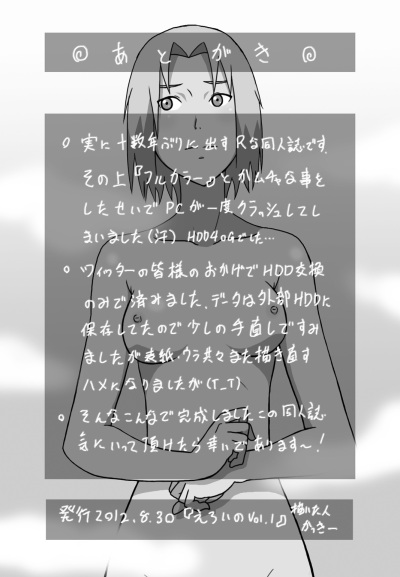 ◎ あ と が き ◎
○ 実に十数年ぶりに出すRな同人誌です。
その上『フルカラー』とかムチャな事を
したせいでPCが一度クラッシュしてし
まいました(汗) HDD40Gでした…
○ ツイッターの皆様のおかげでHDD交換
のみで済みました、データは外部HDDに
保存してたので少しの手直しですみ
ましたが表紙・ウラ共々また描き直す
ハメになりましたが(T_T)
○ そんなこんなで完成しましたこの同人誌
気にいって頂けたら幸いであります〜!
発行2012.8.30『えろいのVol.1』
描いた人
かっきー